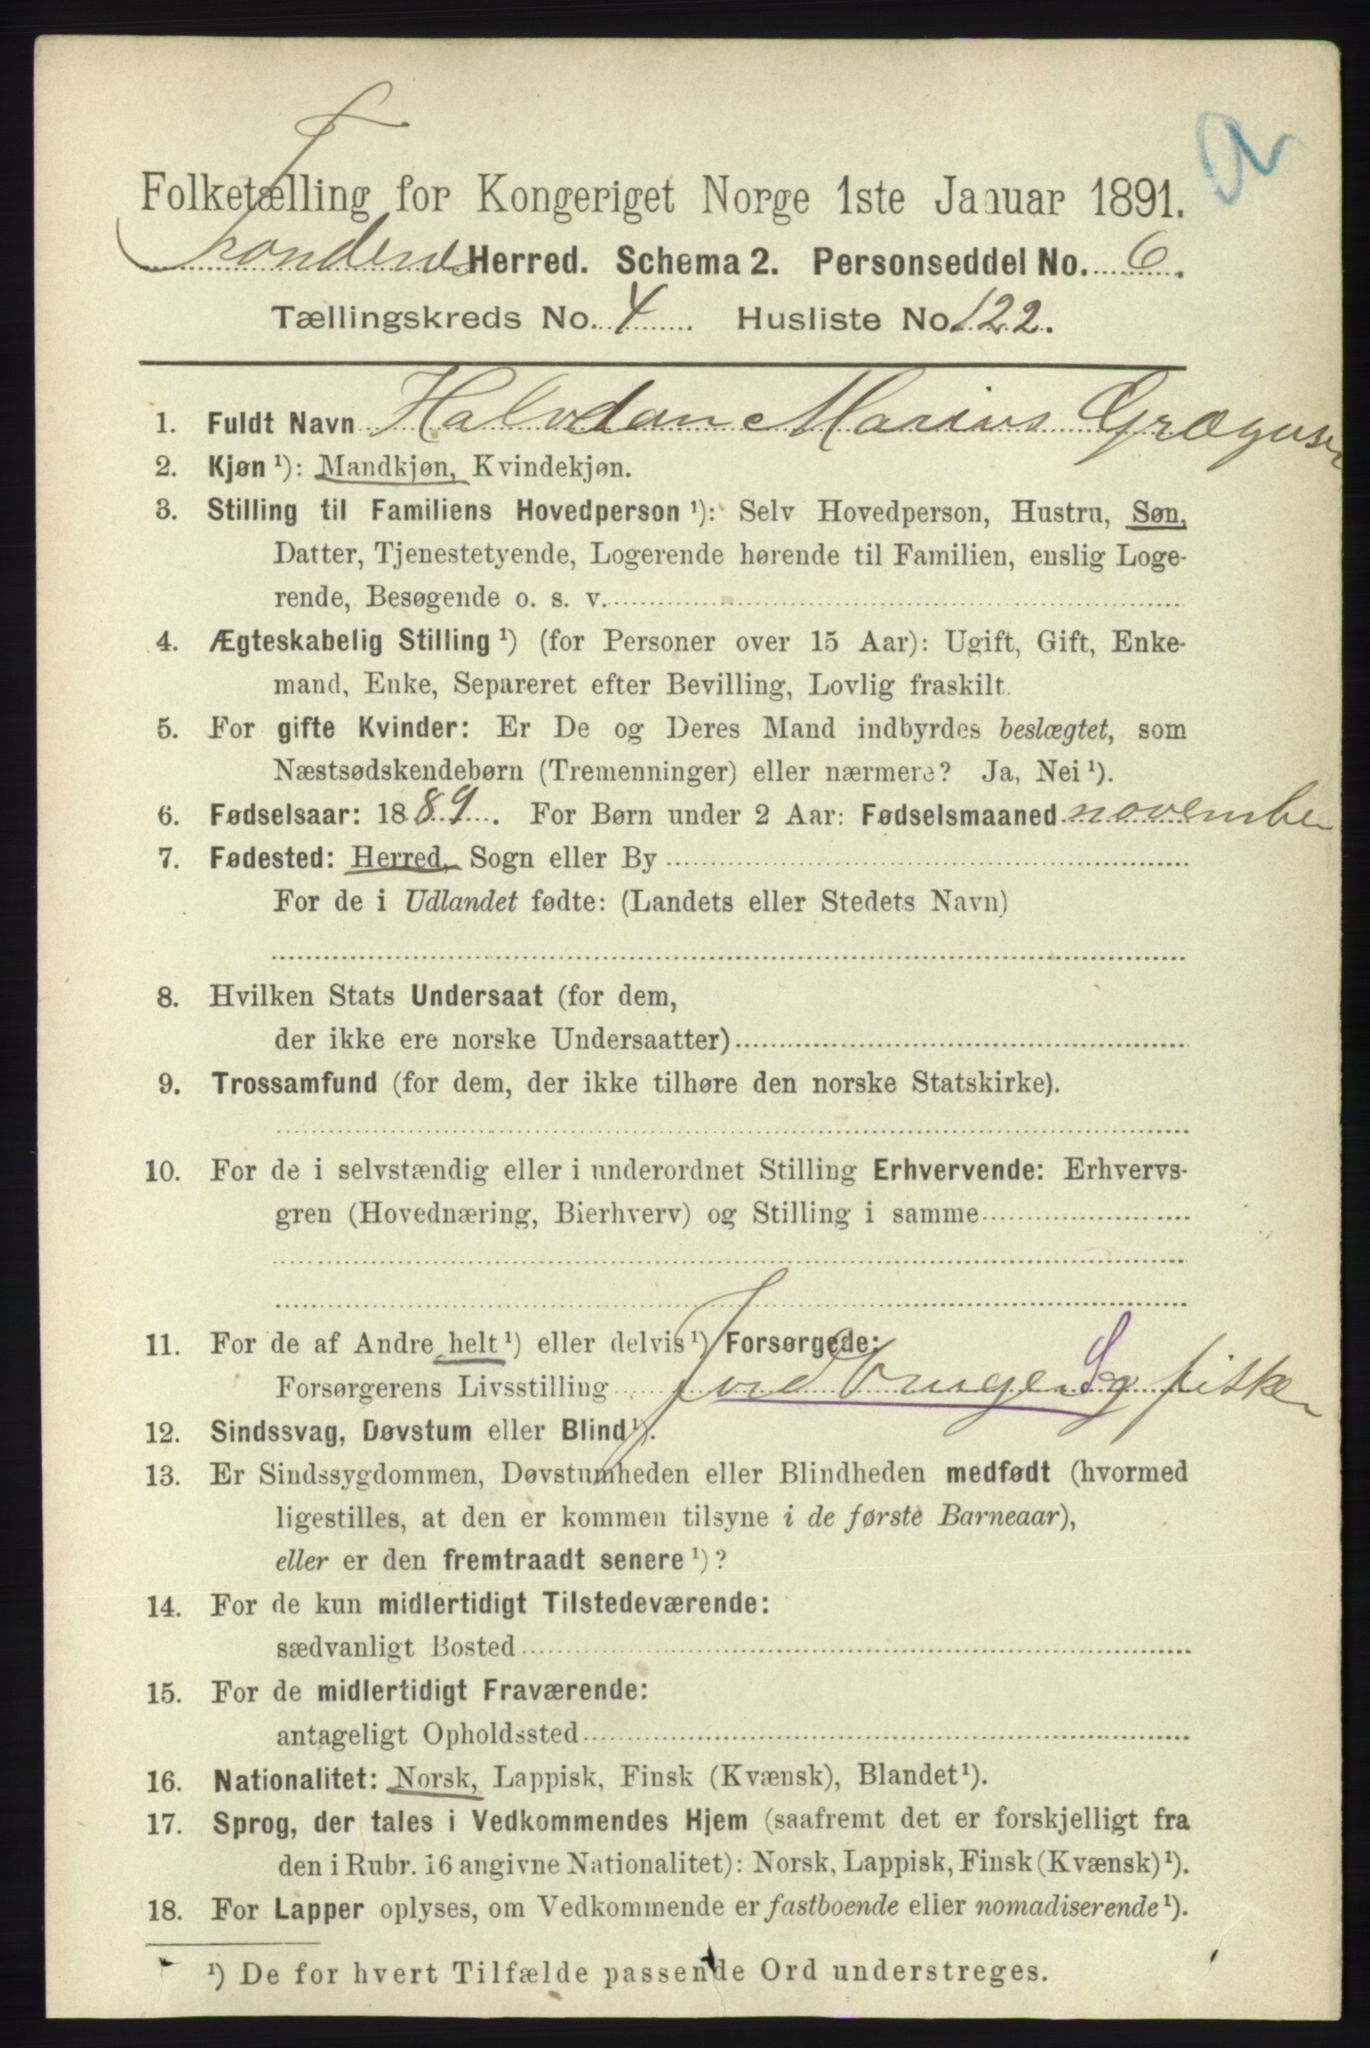 Folketælling for Kongeriget Norge 1ste Januar 1891.
Trondenes Herred. Schema 2. Personseddel No. 6.
Tællingskreds No. 4 Husliste No 122.
1. Fuldt Navn Halvdan Marius Grægusen
2. Kjøn ¹): Mandkjøn, Kvindekjøn.
3. Stilling til Familiens Hovedperson ¹): Selv Hovedperson, Hustru, Søn,
Datter, Tjenestetyende, Logerende hørende til Familien, enslig Loge-
rende, Besøgende o. s. v.
4. Ægteskabelig Stilling ¹) (for Personer over 15 Aar): Ugift, Gift, Enke-
mand, Enke, Separeret efter Bevilling, Lovlig fraskilt.
5. For gifte Kvinder: Er De og Deres Mand indbyrdes beslægtet, som
Næstsødskendebørn (Tremenninger) eller nærmere? Ja, Nei ¹).
6. Fødselsaar: 1889. For Børn under 2 Aar: Fødselsmaaned november
7. Fødested: Herred, Sogn eller By
For de i Udlandet fødte: (Landets eller Stedets Navn)
8. Hvilken Stats Undersaat (for dem,
der ikke ere norske Undersaatter)
9. Trossamfund (for dem, der ikke tilhøre den norske Statskirke).
10. For de i selvstændig eller i underordnet Stilling Erhvervende: Erhvervs-
gren (Hovednæring, Bierhverv) og Stilling i samme
11. For de af Andre helt ¹) eller delvis ¹) Forsørgede:
Forsørgerens Livsstilling Jordbruger og fisker
12. Sindssvag, Døvstum eller Blind ¹).
13. Er Sindssygdommen, Døvstumheden eller Blindheden medfødt (hvormed
ligestilles, at den er kommen tilsyne i de første Barneaar),
eller er den fremtraadt senere ¹)?
14. For de kun midlertidigt Tilstedeværende:
sædvanligt Bosted
15. For de midlertidigt Fraværende:
antageligt Opholdssted
16. Nationalitet: Norsk, Lappisk, Finsk (Kvænsk), Blandet ¹).
17. Sprog, der tales i Vedkommendes Hjem (saafremt det er forskjelligt fra
den i Rubr. 16 angivne Nationalitet): Norsk, Lappisk, Finsk (Kvænsk) ¹).
18. For Lapper oplyses, om Vedkommende er fastboende eller nomadiserende ¹).
¹) De for hvert Tilfælde passende Ord understreges.